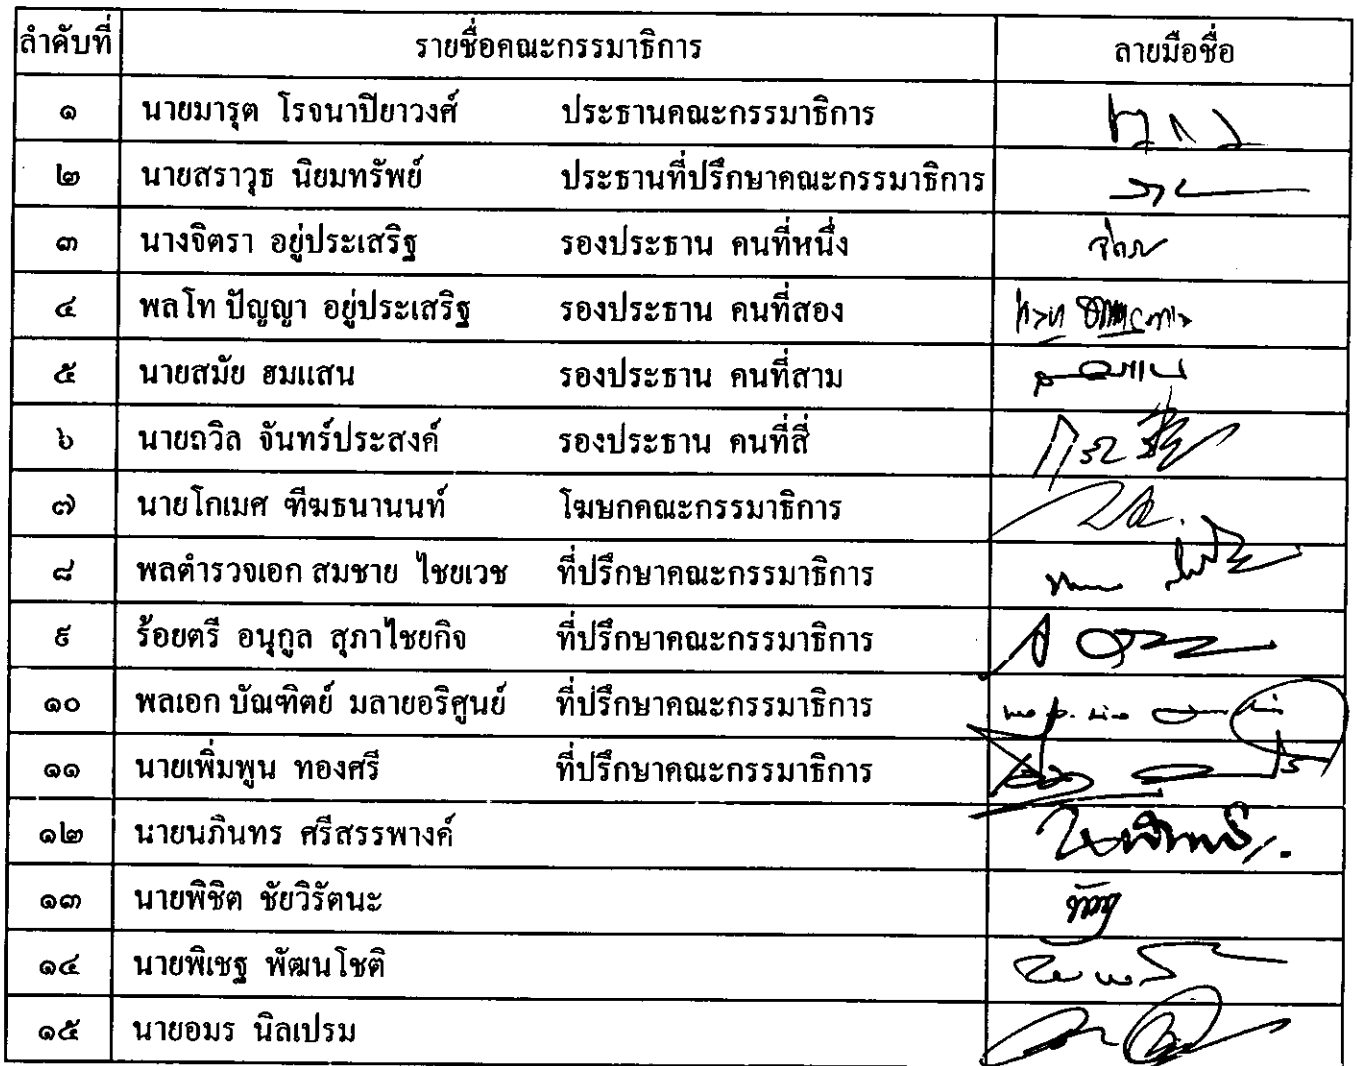 ลำดับที่ รายชื่อคณะกรรมาธิการ ลายมือชื่อ
๑ นายมารุต โรจนาปิยาวงศ์ ประธานคณะกรรมาธิการ
๒ นายสราวุธ นิยมทรัพย์ ประธานที่ปรึกษาคณะกรรมาธิการ
๓ นางจิตรา อยู่ประเสริฐ รองประธาน คนที่หนึ่ง
๔ พลโท ปัญญา อยู่ประเสริฐ รองประธาน คนที่สอง
๕ นายสมัย ฮมแสน รองประธาน คนที่สาม
๖ นายถวิล จันทร์ประสงค์ รองประธาน คนที่สี่
๗ นายโกเมศ ฑีฆธนานนท์ โฆษกคณะกรรมาธิการ
๘ พลตำรวจเอก สมชาย ไชยเวช ที่ปรึกษาคณะกรรมาธิการ
๙ ร้อยตรี อนุกูล สุภาไชยกิจ ที่ปรึกษาคณะกรรมาธิการ
๑๐ พลเอก บัณฑิตย์ มลายอริศูนย์ ที่ปรึกษาคณะกรรมาธิการ
๑๑ นายเพิ่มพูน ทองศรี ที่ปรึกษาคณะกรรมาธิการ
๑๒ นายนภินทร ศรีสรรพางค์
๑๓ นายพิชิต ชัยวิรัตนะ
๑๔ นายพิเชฐ พัฒนโชติ
๑๕ นายอมร นิลเปรม